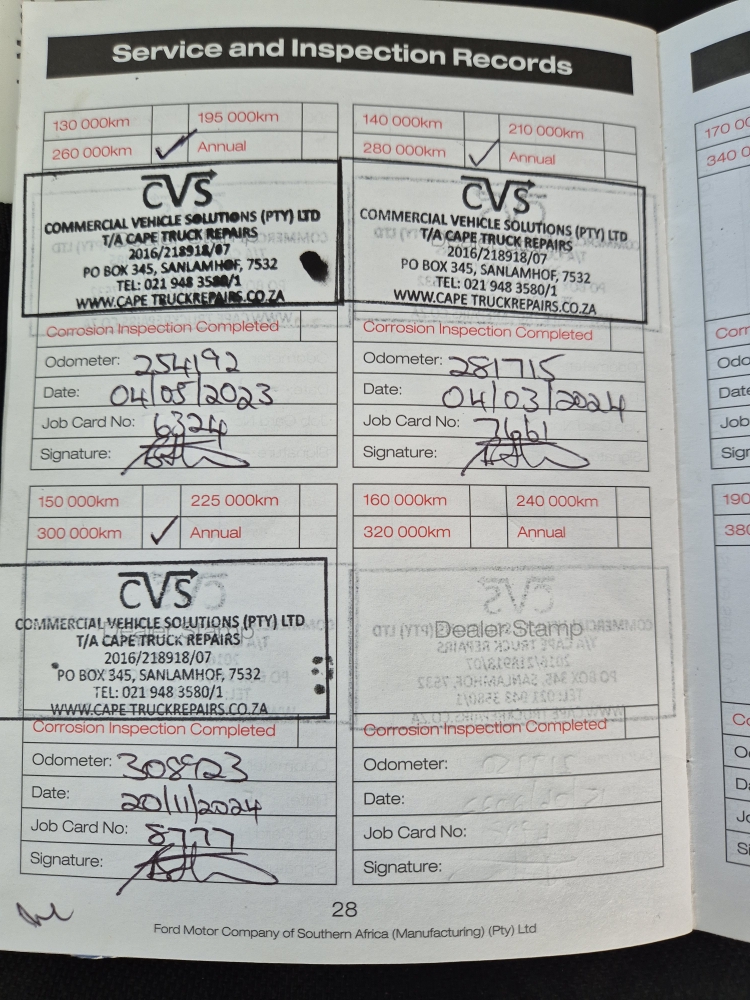 Service and Inspection Records
130 000km 195 000km
260 000km Annual
CVS
COMMERCIAL VEHICLE SOLUTIONS (PTY) LTD
T/A CAPE TRUCK REPAIRS
2016/218918/07
PO BOX 345, SANLAMHOF, 7532
TEL: 021 948 3580/1
WWW.CAPE TRUCKREPAIRS.CO.ZA
Corrosion Inspection Completed
Odometer: 254192
Date: 04/05/2023
Job Card No: 6324
Signature:
140 000km 210 000km
280 000km Annual
CVS
COMMERCIAL VEHICLE SOLUTIONS (PTY) LTD
T/A CAPE TRUCK REPAIRS
2016/218918/07
PO BOX 345, SANLAMHOF, 7532
TEL: 021 948 3580/1
WWW.CAPE TRUCKREPAIRS.CO.ZA
Corrosion Inspection Completed
Odometer: 281715
Date: 04/03/2024
Job Card No:
Signature:
150 000km 225 000km
300 000km Annual
CVS
COMMERCIAL VEHICLE SOLUTIONS (PTY) LTD
T/A CAPE TRUCK REPAIRS
2016/218918/07
PO BOX 345, SANLAMHOF, 7532
TEL: 021 948 3580/1
WWW.CAPE TRUCKREPAIRS.CO.ZA
Corrosion Inspection Completed
Odometer: 308923
Date: 20/11/2024
Job Card No: 8777
Signature:
160 000km 240 000km
320 000km Annual
Dealer Stamp
Corrosion Inspection Completed
Odometer:
Date:
Job Card No:
Signature:
28
Ford Motor Company of Southern Africa (Manufacturing) (Pty) Ltd